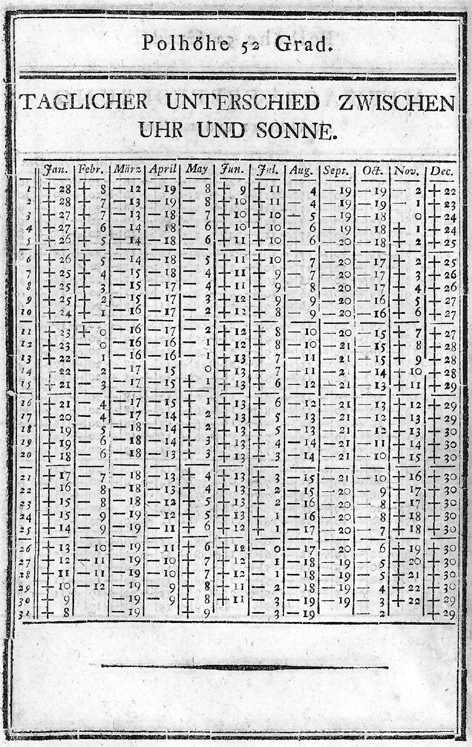 Polhöhe 52 Grad.
TAGLICHER UNTERSCHIED ZWISCHEN
UHR UND SONNE.
Jan. Febr. März April May Jun. Jul. Aug. Sept. Oct. Nov. Dec.
1 +28 +8 —12 —19 —8 +9 +11 —4 —19 —19 —2 +22
2 +28 +7 —13 —19 —8 +10 +11 —4 —19 —19 —1 +23
3 +27 +7 —13 —18 —7 +10 +10 —5 —19 —18 0 +24
4 +27 +6 —14 —18 —6 +10 +10 —6 —19 —18 +1 +24
5 +26 +5 —14 —18 —6 +11 +10 —6 —20 —18 +2 +25
6 +26 +5 —14 —18 —5 +11 +10 —7 —20 —17 +2 +25
7 +25 +4 —15 —18 —4 +11 +9 —7 —20 —17 +3 +26
8 +25 +3 —15 —17 —4 +11 +9 —8 —20 —17 +4 +26
9 +25 +2 —15 —17 —3 +12 +9 —9 —20 —16 +5 +27
10 +24 +1 —16 —17 —2 +12 +8 —9 —20 —16 +6 +27
11 +23 +0 —16 —17 —2 +12 +8 —10 —20 —15 +7 +27
12 +23 0 —16 —16 —1 +12 +8 —10 —21 —15 +8 +28
13 +22 —1 —16 —16 —1 +13 +7 —11 —21 —15 +9 +28
14 +22 —2 —17 —15 0 +13 +7 —11 —21 —14 +10 +28
15 +21 —3 —17 —15 +1 +13 +6 —12 —21 —13 +11 +29
16 +21 —4 —17 —15 +1 +13 +6 —12 —21 —13 +12 +29
17 +20 —4 —17 —14 +2 +13 +5 —13 —21 —12 +13 +29
18 +19 —5 —18 —14 +2 +13 +5 —13 —21 —12 +13 +30
19 +19 —6 —18 —14 +3 +13 +4 —14 —21 —11 +14 +30
20 +18 —6 —18 —13 +3 +13 +3 —14 —21 —10 +15 +30
21 +17 —7 —18 —13 +4 +13 +3 —15 —21 —10 +16 +30
22 +16 —8 —18 —13 +4 +13 +2 —15 —20 —9 +17 +30
23 +15 —8 —18 —12 +5 +13 +2 —16 —20 —8 +17 +30
24 +15 —9 —19 —12 +5 +12 +1 —16 —20 —8 +18 +30
25 +14 —9 —19 —11 +6 +12 +1 —17 —20 —7 +18 +30
26 +13 —10 —19 —11 +6 +12 —0 —17 —20 —6 +19 +30
27 +12 —11 —19 —10 +7 +12 —1 —18 —20 —5 +20 +30
28 +11 —11 —19 —10 +7 +12 —1 —18 —19 —5 +21 +30
29 +10 —12 —19 —9 +8 +11 —2 —18 —19 —4 +22 +30
30 +9 —19 —9 +8 +11 —3 —19 —19 —3 +22 +30
31 +8 —19 +9 —3 —19 —2 +29